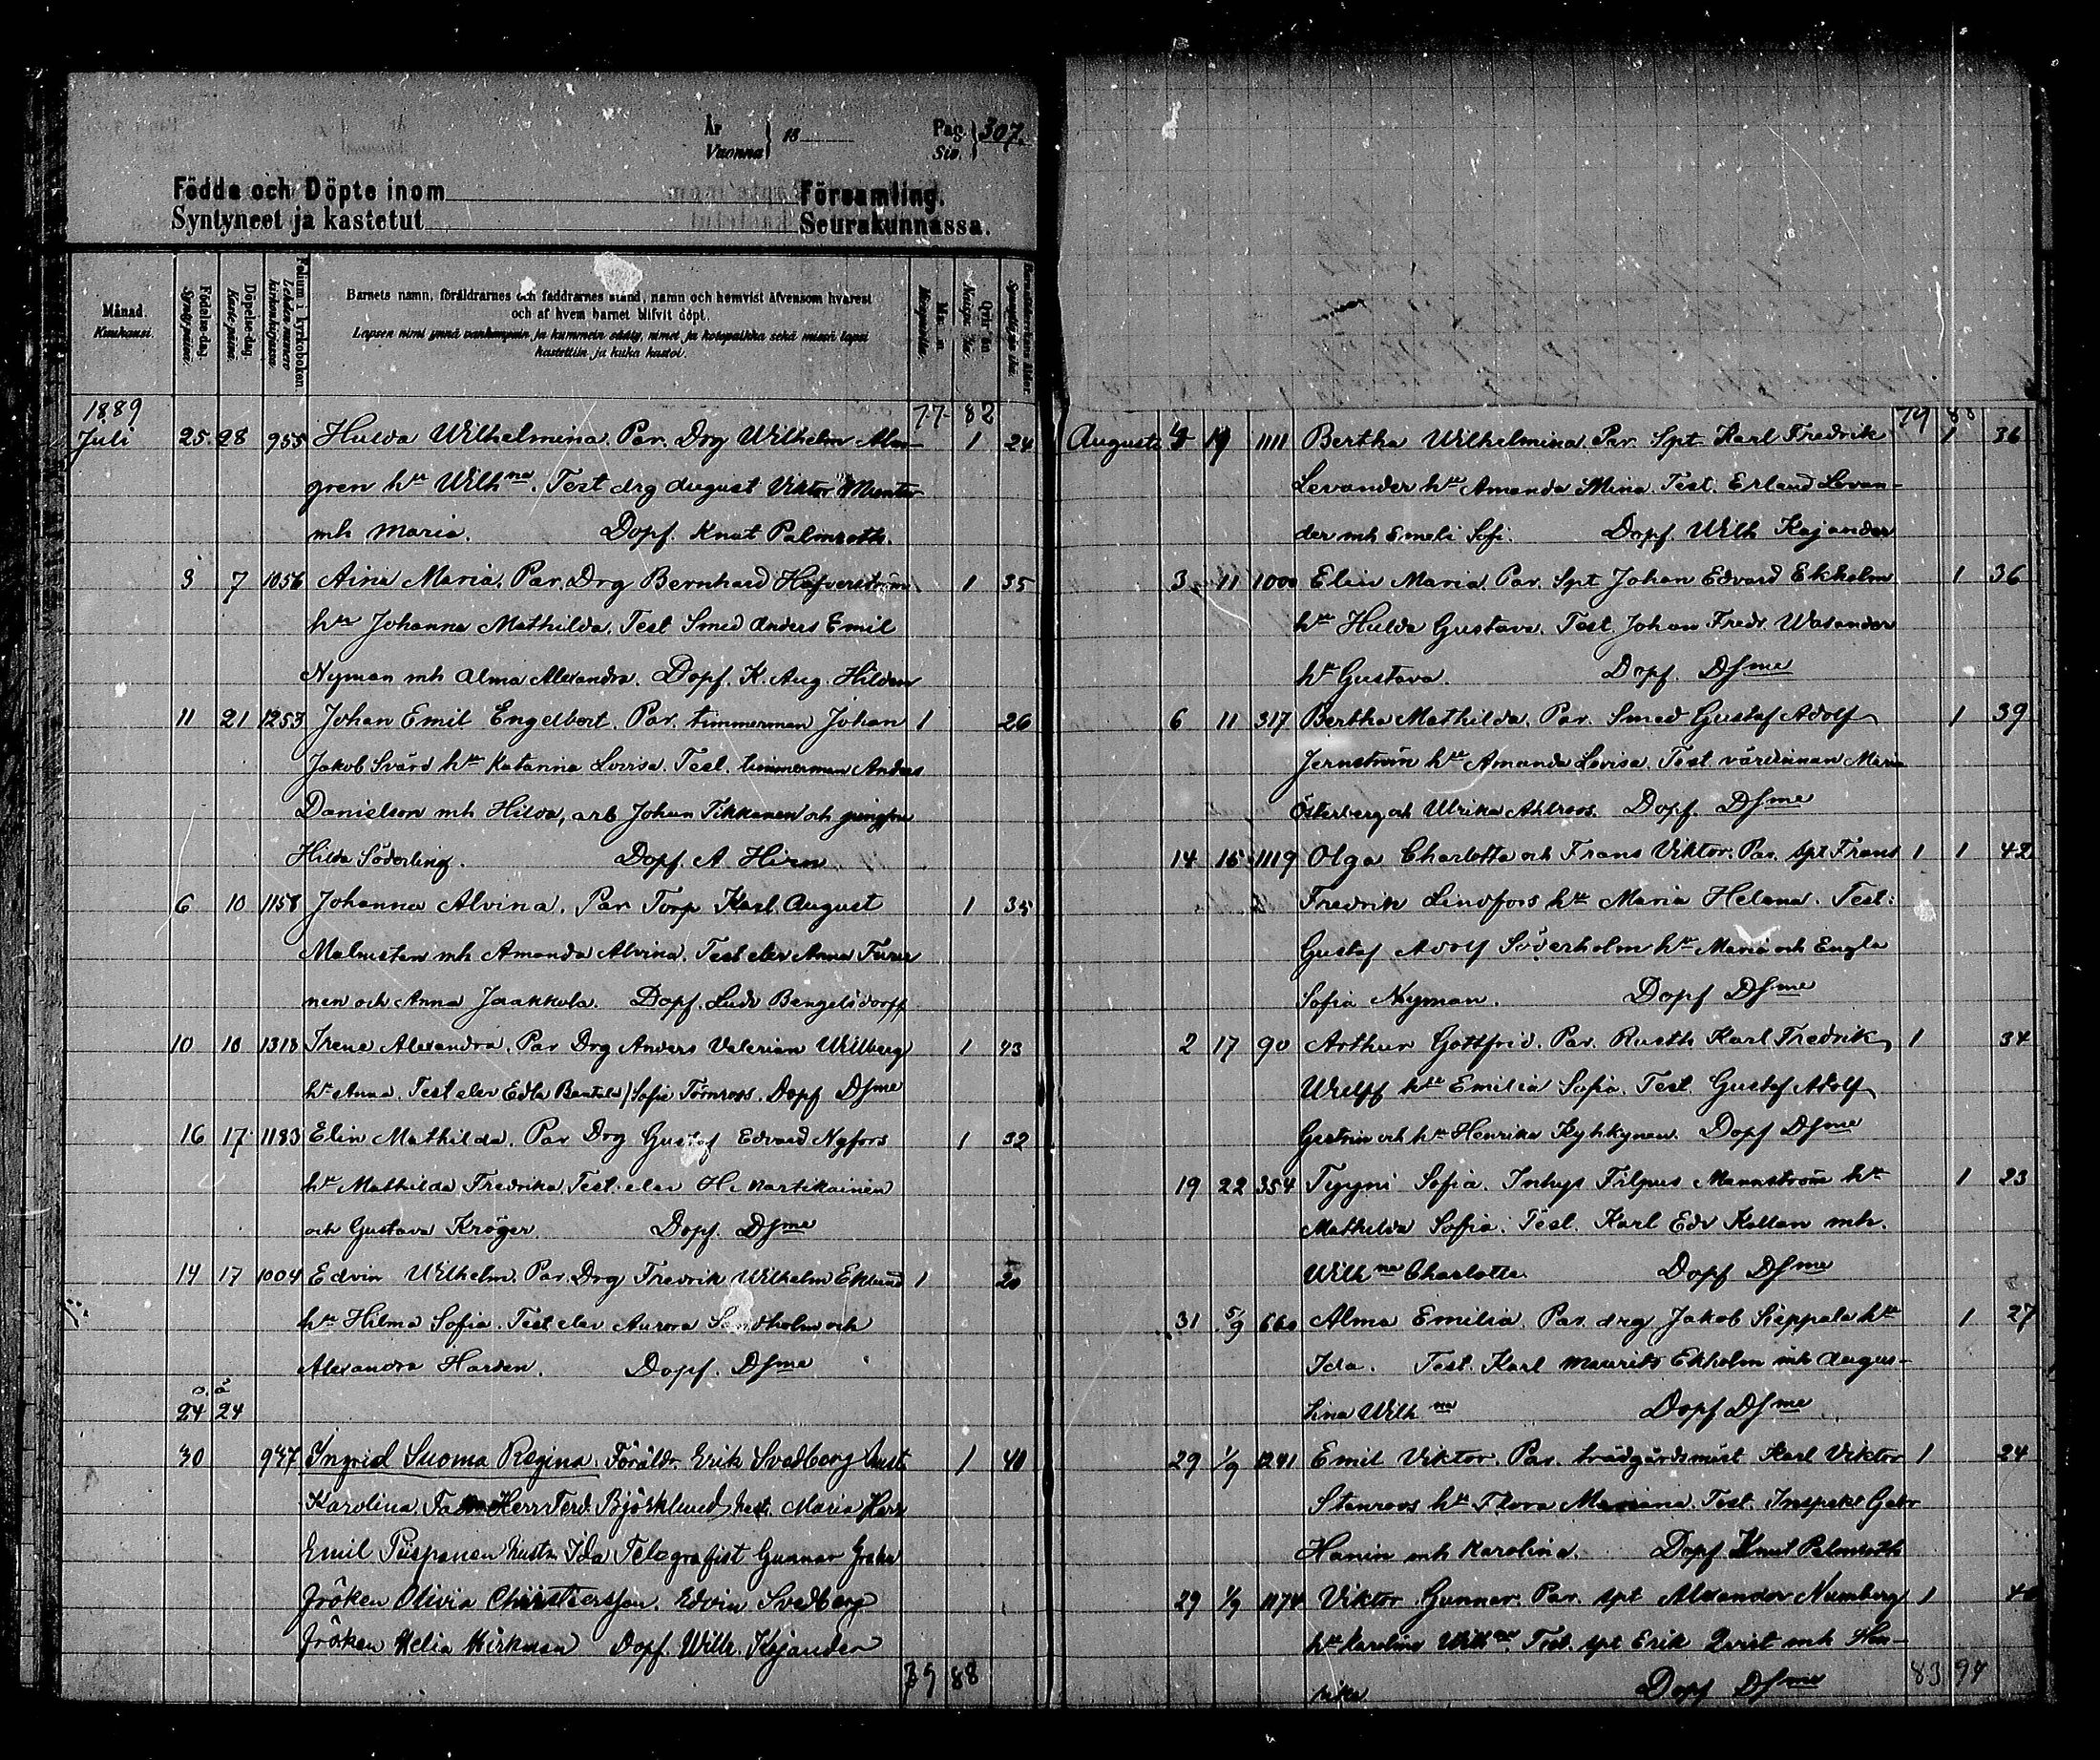 År Vuonna } 18 Pag. Siv. } 307.
Födda och Döpte inom Församling.
Syntyneet ja kastetut Seurakunnassa.
Månad. Kuukausi.
Födelse-dag. Syntypäivä.
Döpelse-dag. Kastepäivä.
Folium i kyrkoboken. Lehden numero kirkonkirjassa.
Barnets namn, föräldrarnes och faddrarnes stånd, namn och hemvist äfvensom hvarest
och af hvem barnet blifvit döpt.
Lapsen nimi ynnä vanhempain ja kummein sääty, nimet ja kotopaikka sekä missä lapsi
kastettiin ja kuka kastoi.
Mk. n. Miespuolia.
Qvk. n. Naisp.
1889 77 82
Juli 25 28 955 Hulda Wilhelmina. Par. Drg Wilhelm Alm- 1 24
gren hu Wilhna. Test drg August Viktor Munter
mh Maria. Dopf. Knut Palmroth.
3 7 1056 Aina Maria. Par. Drg Bernhard Hafverström 1 35
hu Johanna Mathilda. Test Smed Anders Emil
Nyman mh Alma Alexandra. Dopf. K. Aug. Hildén
11 21 1253 Johan Emil Engelbert. Par. timmerman Johan 1 26
Jakob Svärd hu Katarina Lovisa. Test. timmerman Anders
Danielson mh Hilda, arb Johan Tikkanen och jungfru
Hilda Söderling. Dopf A. Hirn
6 10 1158 Johanna Alvina. Par Torp Karl August 1 35
Malmsten mh Amanda Alvina. Test elev Anna Furu
nen och Anna Jaakkola. Dopf. Ludv Bengelsdorff
10 10 1313 Irene Alexandra. Par Drg Anders Valerian Willberg 1 43
hu Anna. Test elev Edla / Sofie Törnroos. Dopf Dsme
16 17 1183 Elin Mathilda. Par Drg Gustaf Edvard Nyfors 1 32
hu Mathilda Fredrika. Test. elev H. Martikainen
och Gustava Kröger Dopf. Dsme
14 17 1004 Edvin Wilhelm. Par. Drg Fredrik Wilhelm Eklund 1 20
hu Hilma Sofia. Test elev Aurora Sandholm och
Alexandra Harden. Dopf. Dsme
24 24
30 937 Ingrid Suoma Regina. Föräldr. Erik Svedberg hust 1 40
Karolina. Herr Ferd. Björklund hust. Maria Herr
Emil Piispanen hustn Ida Telegrafist Gunnar
fröken Olivia Christiersson. Edvin Svedberg
fröken Helia Hirkman Dopf. Wilh. Kajander
79 88
79 88
Augusti 19 1111 Bertha Wilhelmina. Par. Spt Karl Fredrik 1 36
Levander hu Amanda Mina. Test. Erland Levan-
der mh Emeli Sofi. Dopf. Wilh Kajander
3 11 1000 Elin Maria. Par. Spt Johan Edvard Ekholm 1 36
hu Hulda Gustava. Test. Johan Fredr. Wasander
hu Gustava. Dopf. Dsme
6 11 317 Bertha Mathilda. Par. Smed Gustaf Adolf 1 39
Jernström hu Amanda Lovisa. Test. värdinnan Maria
Österberg och Ulrika Ahlroos. Dopf. Dsme
14 15 1119 Olga Charlotta och Frans Viktor. Par. spt Frans 1 1 42
Fredrik Lindfors hu Maria Helena. Test:
Gustaf Adolf Söderholm hu Maria och Engla
Sofia Nyman. Dopf Dsme
2 17 90 Arthur Gottfrid. Par. Rusth. Karl Fredrik 1 34
Wulff hu Emilia Sofia. Test. Gustaf Adolf
och hu Henrika Kyhkynen. Dopf Dsme
19 22 354 Tyyni Sofia. Inhys Filpus Mannström hu 1 23
Mathilda Sofia. Test. Karl Edv Kallan mh.
Wilhna Charlotta. Dopf Dsme
31 5/9 660 Alma Emilia. Par. drg Jakob Sieppala hu 1 27
Ida. Test. Karl Maurits Ekholm mh Augus-
tina Wilhna Dopf Dsme
29 1/9 1241 Emil Viktor. Par. trädgårdsmäst Karl Viktor 1 24
Stenroos hu Thora Mariana. Test. Inspekt Gabr
Hanin mh Karolina. Dopf Knut Palmroth
29 1/9 1174 Viktor Gunnar. Par. spt Alexander Numberg 1
hu Karolina Wilhna. Test. spt Erik Qvist mh Hen-
rika Dopf Dsme
83 94